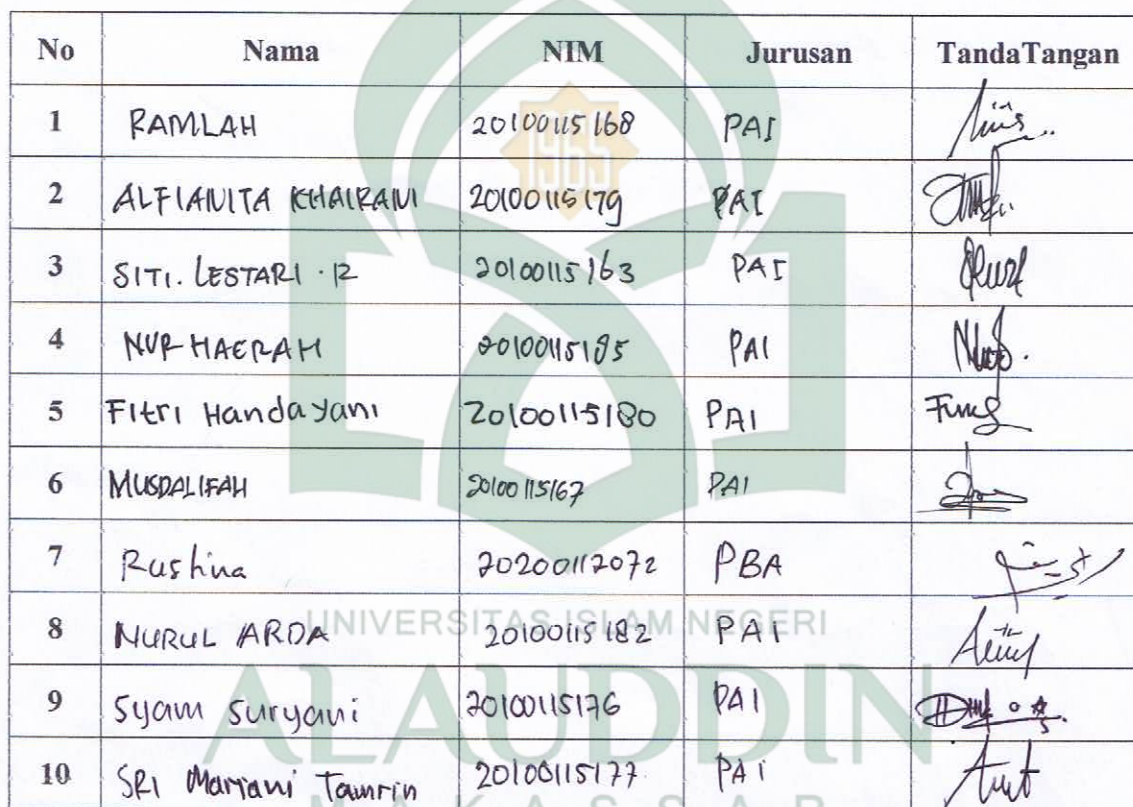 No Nama NIM Jurusan TandaTangan
1 RAMLAH 20100115168 PAI
2 ALFIANITA KHAIRANI 20100115179 PAI
3 SITI. LESTARI . R 20100115163 PAI
4 NUR HAERAH 20100115185 PAI
5 Fitri Handayani 20100115180 PAI
6 MUSDALIFAH 20100115167 PAI
7 Rushina 20200112072 PBA
8 NURUL ARDA 20100115182 PAI
9 Syam Suryani 20100115176 PAI
10 SRI Mariani Tamrin 20100115177 PAI
1965
UNIVERSITAS ISLAM NEGERI
ALAUDDIN
MAKASSAR